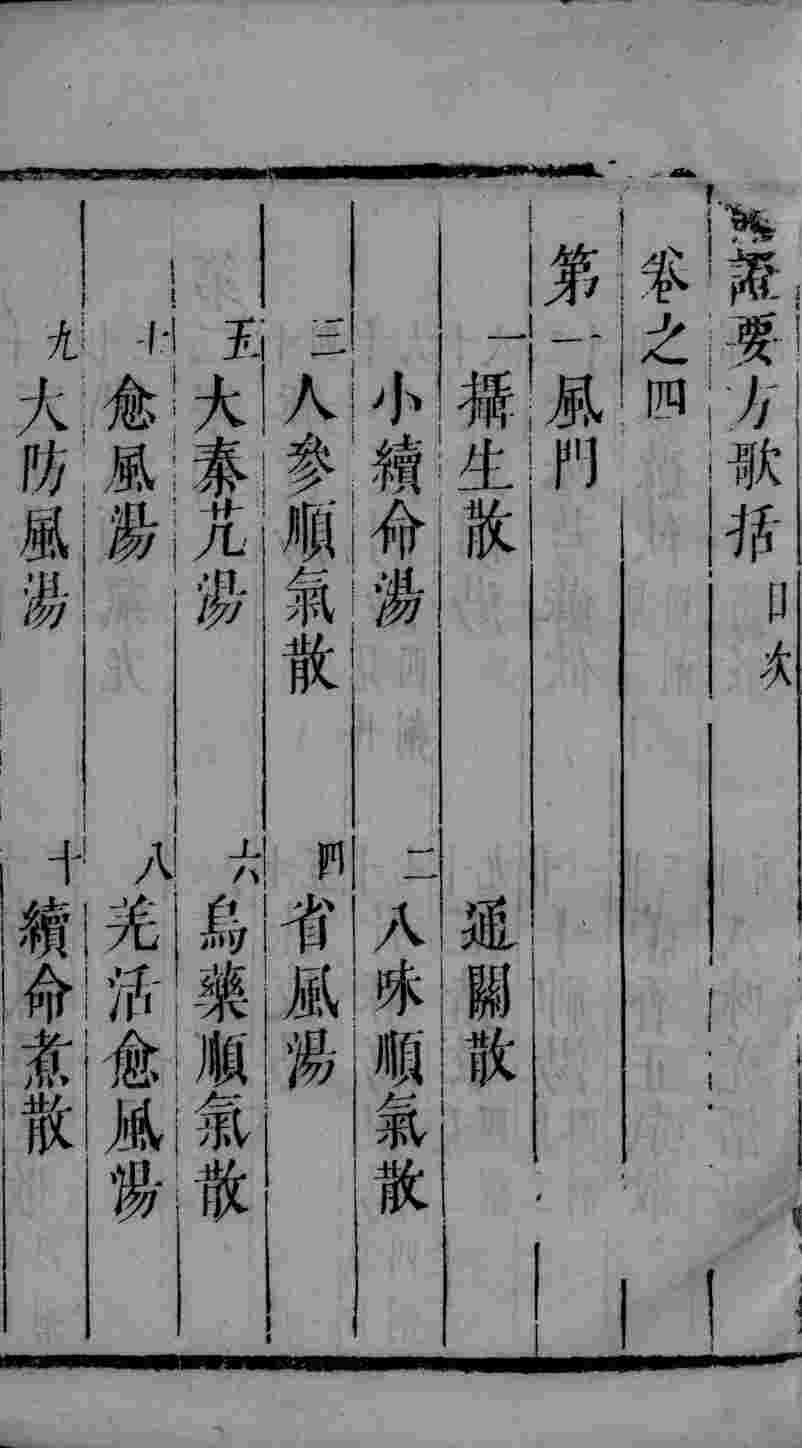 證要方歌括 目次
卷之四
第一風門
一 攝生散 通關散
小續命湯 二 八味順氣散
三 人參順氣散 四 省風湯
五 大秦艽湯 六 烏藥順氣散
七 愈風湯 八 羌活愈風湯
九 大防風湯 十 續命煮散